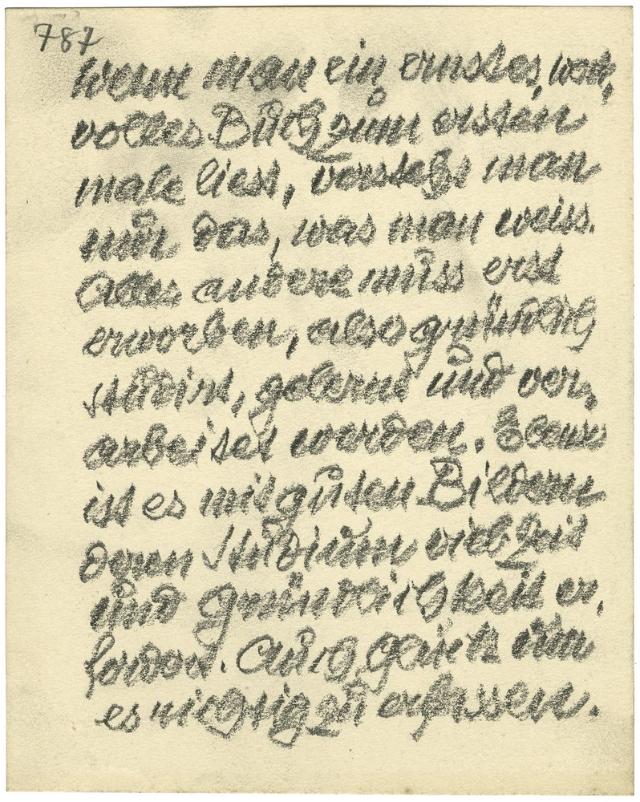 787
Wenn man ein ernstes, wert,
volles Buch zum ersten
male liest, versteht man
nur das, was man weiss.
Alles andere muss erst
erworben, also gründlich
studirt, gelernt und ver,
arbeitet werden. Ebenso
ist es mit guten Bildern
deren Studium viel Zeit
und Gründlichkeit er,
fordert. Auch, ganz um
es richtig zu erfassen.